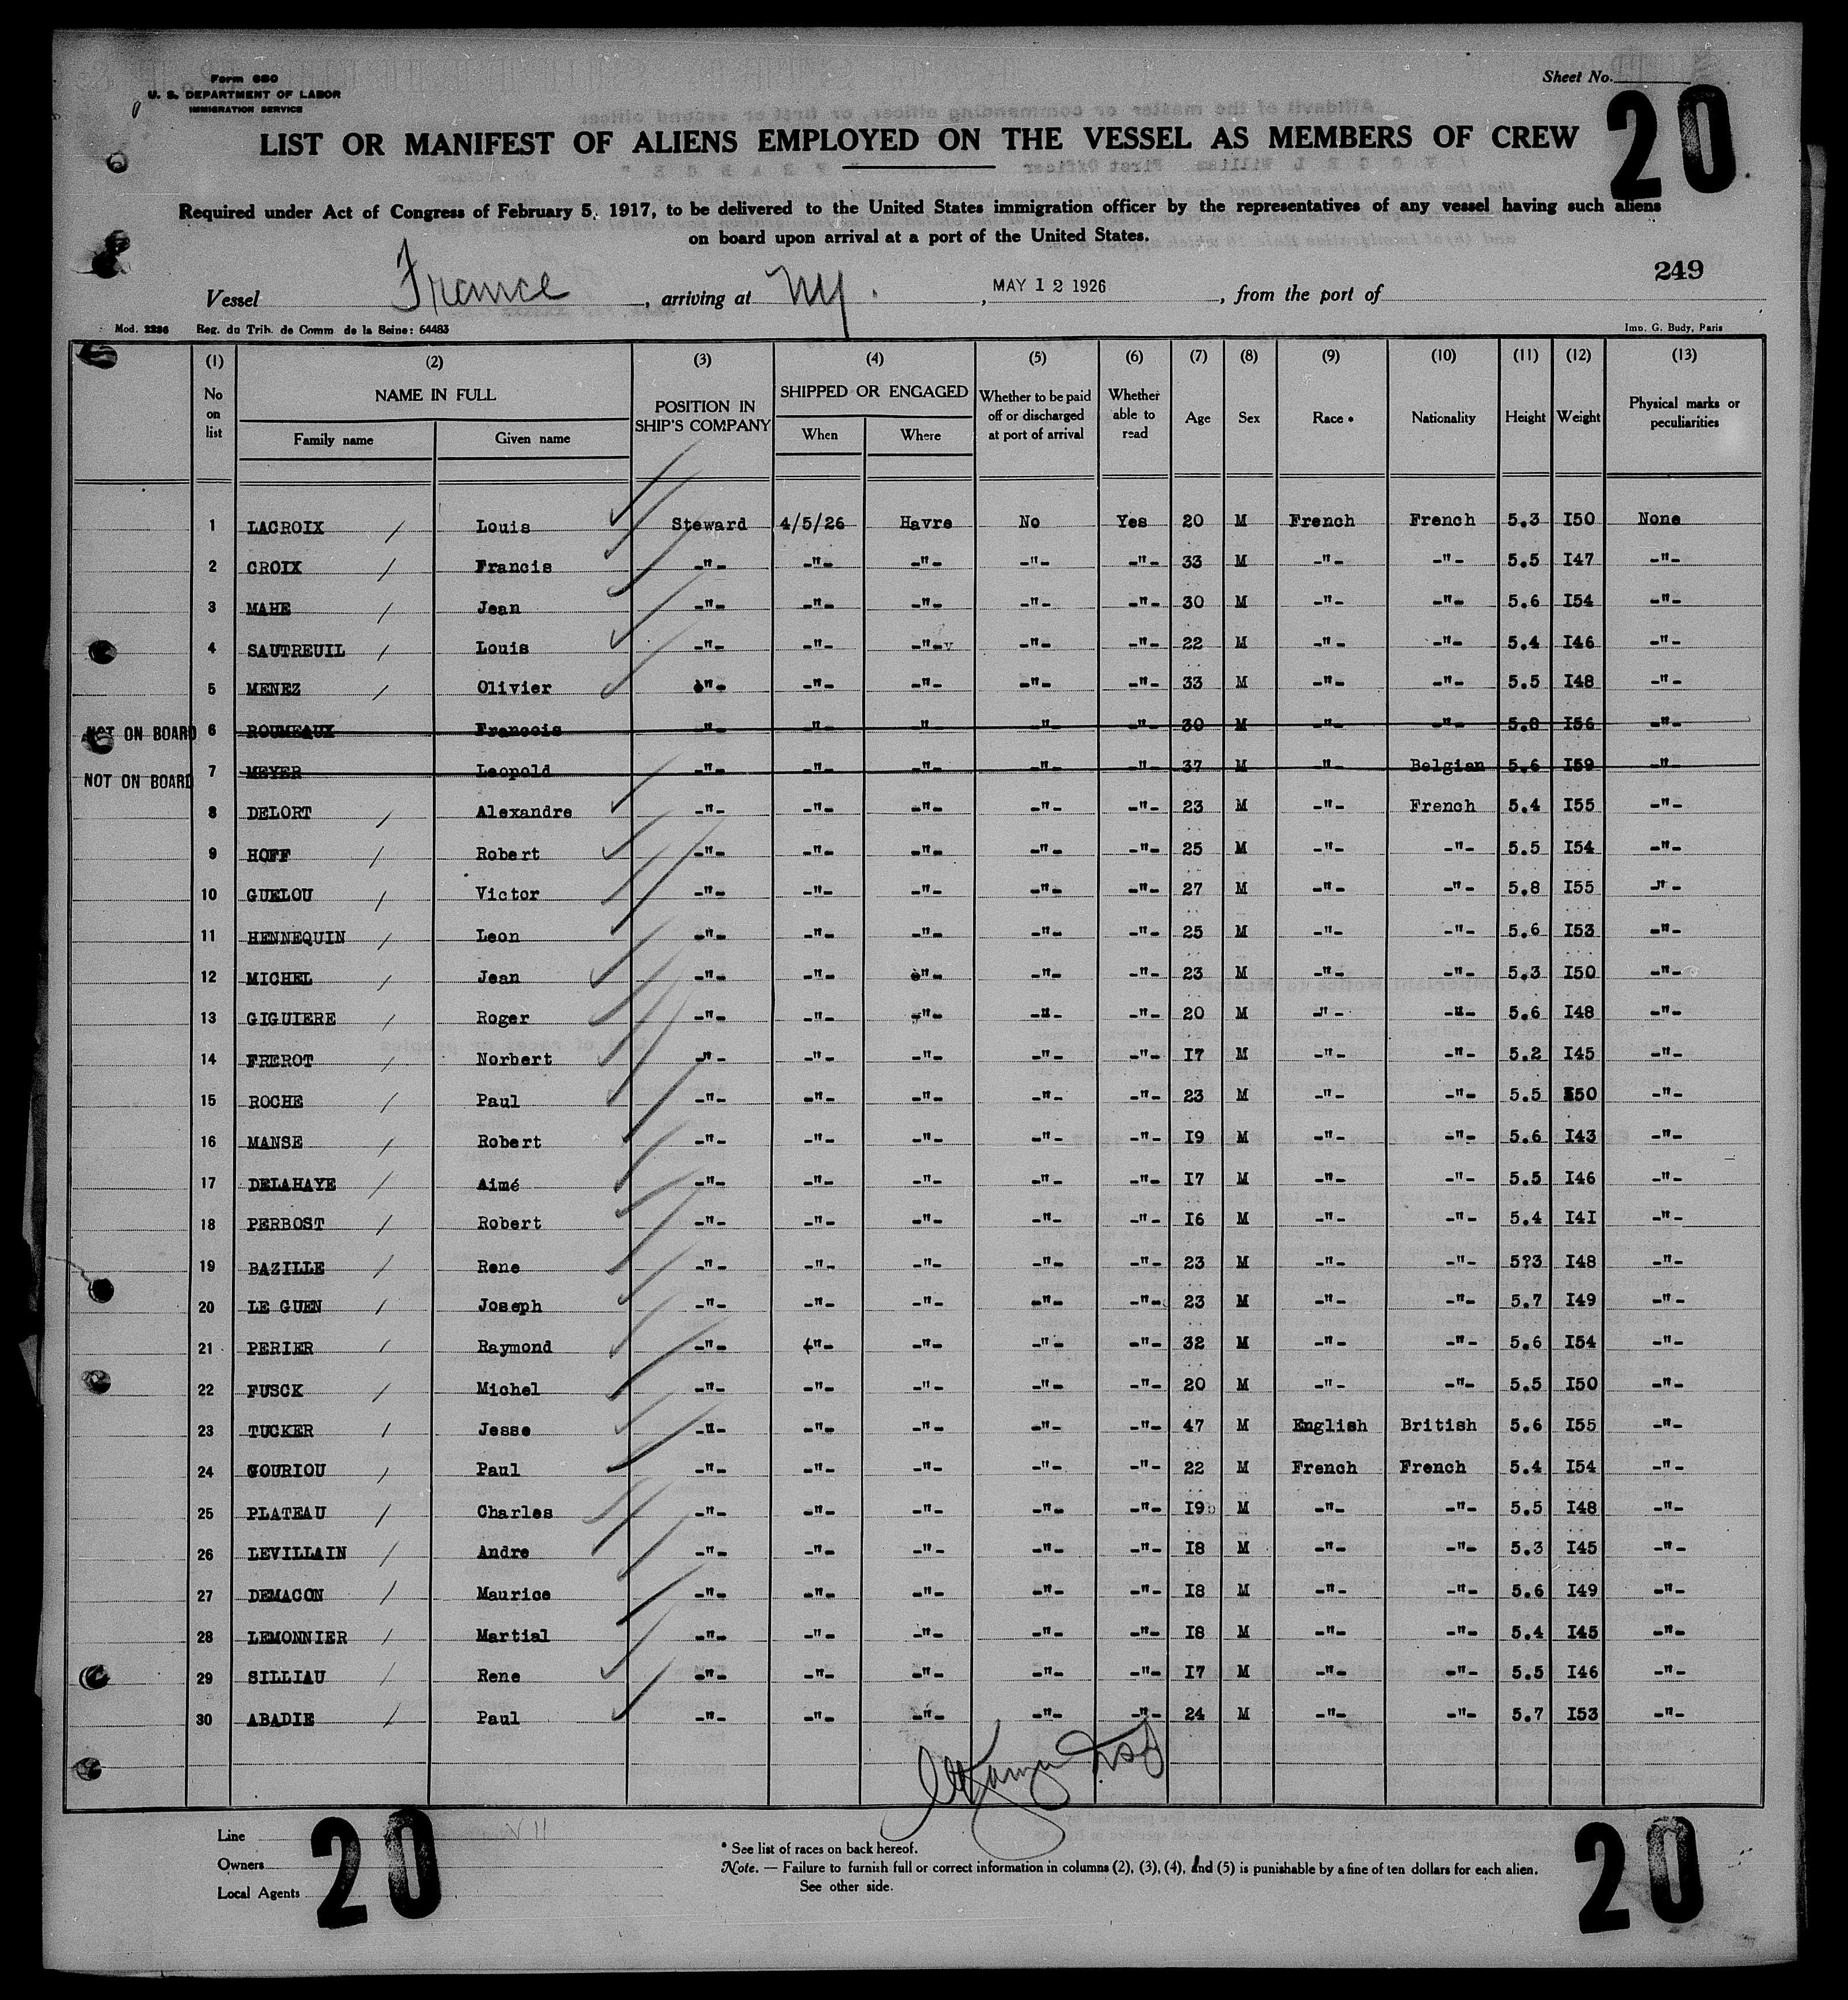 Form 680
U. S. DEPARTMENT OF LABOR
IMMIGRATION SERVICE
Sheet No.
20
LIST OR MANIFEST OF ALIENS EMPLOYED ON THE VESSEL AS MEMBERS OF CREW
Required under Act of Congress of February 5, 1917, to be delivered to the United States immigration officer by the representatives of any vessel having such aliens
on board upon arrival at a port of the United States.
249
Vessel France, arriving at NY., MAY 12 1926, from the port of
Mod. 2226 Reg. du Trib. de Comm de la Seine: 64483 Imp. G. Budy, Paris
(1) (2) (3) (4) (5) (6) (7) (8) (9) (10) (11) (12) (13)
No on list NAME IN FULL Family name Given name POSITION IN SHIP'S COMPANY SHIPPED OR ENGAGED When Where Whether to be paid off or discharged at port of arrival Whether able to read Age Sex Race * Nationality Height Weight Physical marks or peculiarities
1 LACROIX / Louis Steward 4/5/26 Havre No Yes 20 M French French 5.3 I50 None
2 CROIX / Francis -"- -"- -"- -"- -"- 33 M -"- -"- 5.5 I47 -"-
3 MAHE / Jean -"- -"- -"- -"- -"- 30 M -"- -"- 5.6 I54 -"-
4 SAUTREUIL / Louis -"- -"- -"- -"- -"- 22 M -"- -"- 5.4 I46 -"-
5 MENEZ / Olivier -"- -"- -"- -"- -"- 33 M -"- -"- 5.5 I48 -"-
NOT ON BOARD 6 ROUMEAUX Francois -"- -"- -"- -"- -"- 30 M -"- -"- 5.8 I56 -"-
NOT ON BOARD 7 MEYER Leopold -"- -"- -"- -"- -"- 37 M -"- Belgian 5.6 I59 -"-
8 DELORT / Alexandre -"- -"- -"- -"- -"- 23 M -"- French 5.4 I55 -"-
9 HOFF / Robert -"- -"- -"- -"- -"- 25 M -"- -"- 5.5 I54 -"-
10 GUELOU / Victor -"- -"- -"- -"- -"- 27 M -"- -"- 5.8 I55 -"-
11 HENNEQUIN / Leon -"- -"- -"- -"- -"- 25 M -"- -"- 5.6 I53 -"-
12 MICHEL / Jean -"- -"- -"- -"- -"- 23 M -"- -"- 5.3 I50 -"-
13 GIGUIERE / Roger -"- -"- -"- -"- -"- 20 M -"- -"- 5.6 I48 -"-
14 FREROT / Norbert -"- -"- -"- -"- -"- I7 M -"- -"- 5.2 I45 -"-
15 ROCHE / Paul -"- -"- -"- -"- -"- 23 M -"- -"- 5.5 I50 -"-
16 MANSE / Robert -"- -"- -"- -"- -"- I9 M -"- -"- 5.6 I43 -"-
17 DELAHAYE / Aimé -"- -"- -"- -"- -"- I7 M -"- -"- 5.5 I46 -"-
18 PERBOST / Robert -"- -"- -"- -"- -"- I6 M -"- -"- 5.4 I4I -"-
19 BAZILLE / Rene -"- -"- -"- -"- -"- 23 M -"- -"- 5?3 I48 -"-
20 LE GUEN / Joseph -"- -"- -"- -"- -"- 23 M -"- -"- 5.7 I49 -"-
21 PERIER / Raymond -"- -"- -"- -"- -"- 32 M -"- -"- 5.6 I54 -"-
22 FUSCK / Michel -"- -"- -"- -"- -"- 20 M -"- -"- 5.5 I50 -"-
23 TUCKER / Jesse -"- -"- -"- -"- -"- 47 M English British 5.6 I55 -"-
24 GOURIOU / Paul -"- -"- -"- -"- -"- 22 M French French 5.4 I54 -"-
25 PLATEAU / Charles -"- -"- -"- -"- -"- I9 M -"- -"- 5.5 I48 -"-
26 LEVILLAIN / Andre -"- -"- -"- -"- -"- I8 M -"- -"- 5.3 I45 -"-
27 DEMACON / Maurice -"- -"- -"- -"- -"- I8 M -"- -"- 5.6 I49 -"-
28 LEMONNIER / Martial -"- -"- -"- -"- -"- I8 M -"- -"- 5.4 I45 -"-
29 SILLIAU / Rene -"- -"- -"- -"- -"- I7 M -"- -"- 5.5 I46 -"-
30 ABADIE / Paul -"- -"- -"- -"- -"- 24 M -"- -"- 5.7 I53 -"-
Line
Owners
Local Agents
20
* See list of races on back hereof.
Note. — Failure to furnish full or correct information in columns (2), (3), (4), and (5) is punishable by a fine of ten dollars for each alien.
See other side.
20